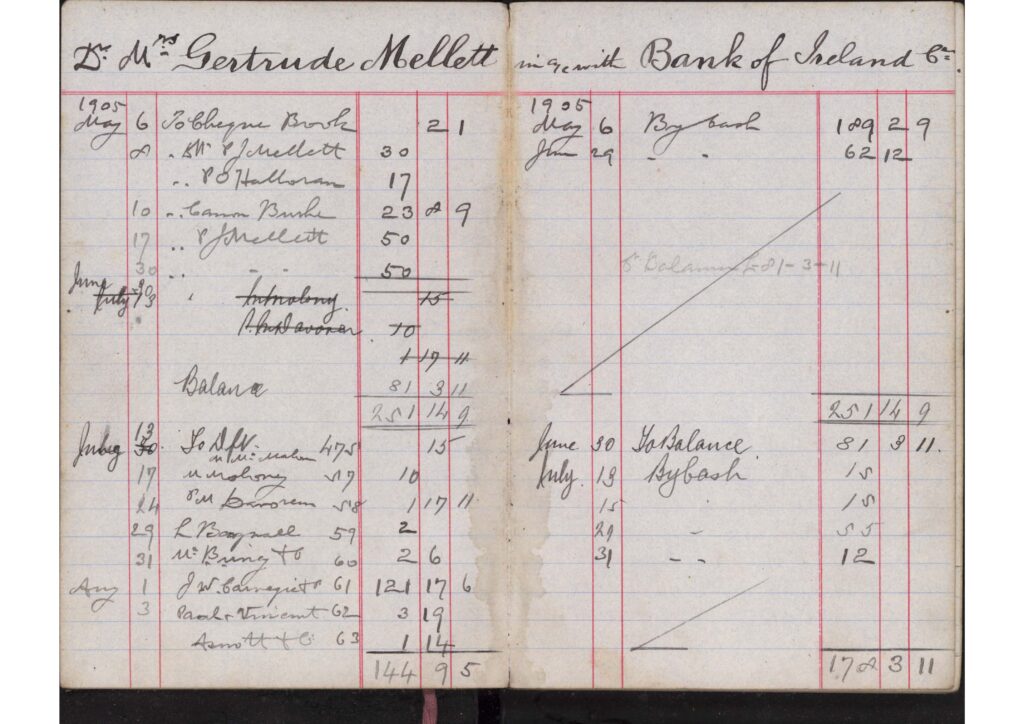 Dr. Mrs Gertrude Mellett
1905
May 6 To Cheque Brook 2 1
8 .. P J Mellett 30
.. P O'Halloran 17
10 .. Canon Burke 23 8 9
17 .. P J Mellett 50
30 .. - - 50
June 30
July 13 15
10
1 17 11
Balance 81 3 11
251 14 9
13
July 30 To 475 15
17 Mahony 57 10
24 58 1 17 11
29 L Bagnall 59 2
31 60 2 6
Aug 1 J W. Carnegie 61 121 17 6
3 Paul & Vincent 62 3 19
Arnott & Co 63 1 14
144 9 5
in a/c with Bank of Ireland Cr.
1905
May 6 By Cash 189 2 9
June 29 - - 62 12
Balance £81-3-11
251 14 9
June 30 To Balance 81 3 11.
July 13 By Cash 15
15 15
29 - 55
31 - - 12
178 3 11